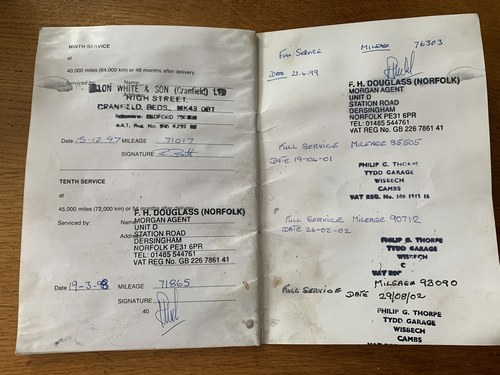 NINTH SERVICE
at
40,000 miles (64,000 km) or 48 months after delivery
Serviced by: Name
WHITE & SON (Cranfield) LTD
HIGH STREET,
CRANFIELD, BEDS. MK43 0BT
Date 15-12-97 MILEAGE 71017
SIGNATURE
TENTH SERVICE
at
45,000 miles (72,000 km) or 54 months after delivery
Serviced by: Name
F. H. DOUGLASS (NORFOLK)
MORGAN AGENT
Address UNIT D
STATION ROAD
DERSINGHAM
NORFOLK PE31 6PR
TEL: 01485 544761
VAT REG No. GB 226 7861 41
Date 19-3-98 MILEAGE 71865
SIGNATURE
40
FULL SERVICE MILEAGE 76303
DATE 22-4-99
F. H. DOUGLASS (NORFOLK)
MORGAN AGENT
UNIT D
STATION ROAD
DERSINGHAM
NORFOLK PE31 6PR
TEL: 01485 544761
VAT REG No. GB 226 7861 41
FULL SERVICE MILEAGE
DATE 19-06-01
PHILIP G. THORPE
TYDD GARAGE
WISBECH
CAMBS
VAT REG. No.
FULL SERVICE MILEAGE 90712
DATE 26-02-02
PHILIP G. THORPE
TYDD GARAGE
WISBECH
C
VAT REG
FULL SERVICE MILEAGE 93090
DATE 29/08/02
PHILIP G. THORPE
TYDD GARAGE
WISBECH
CAMBS